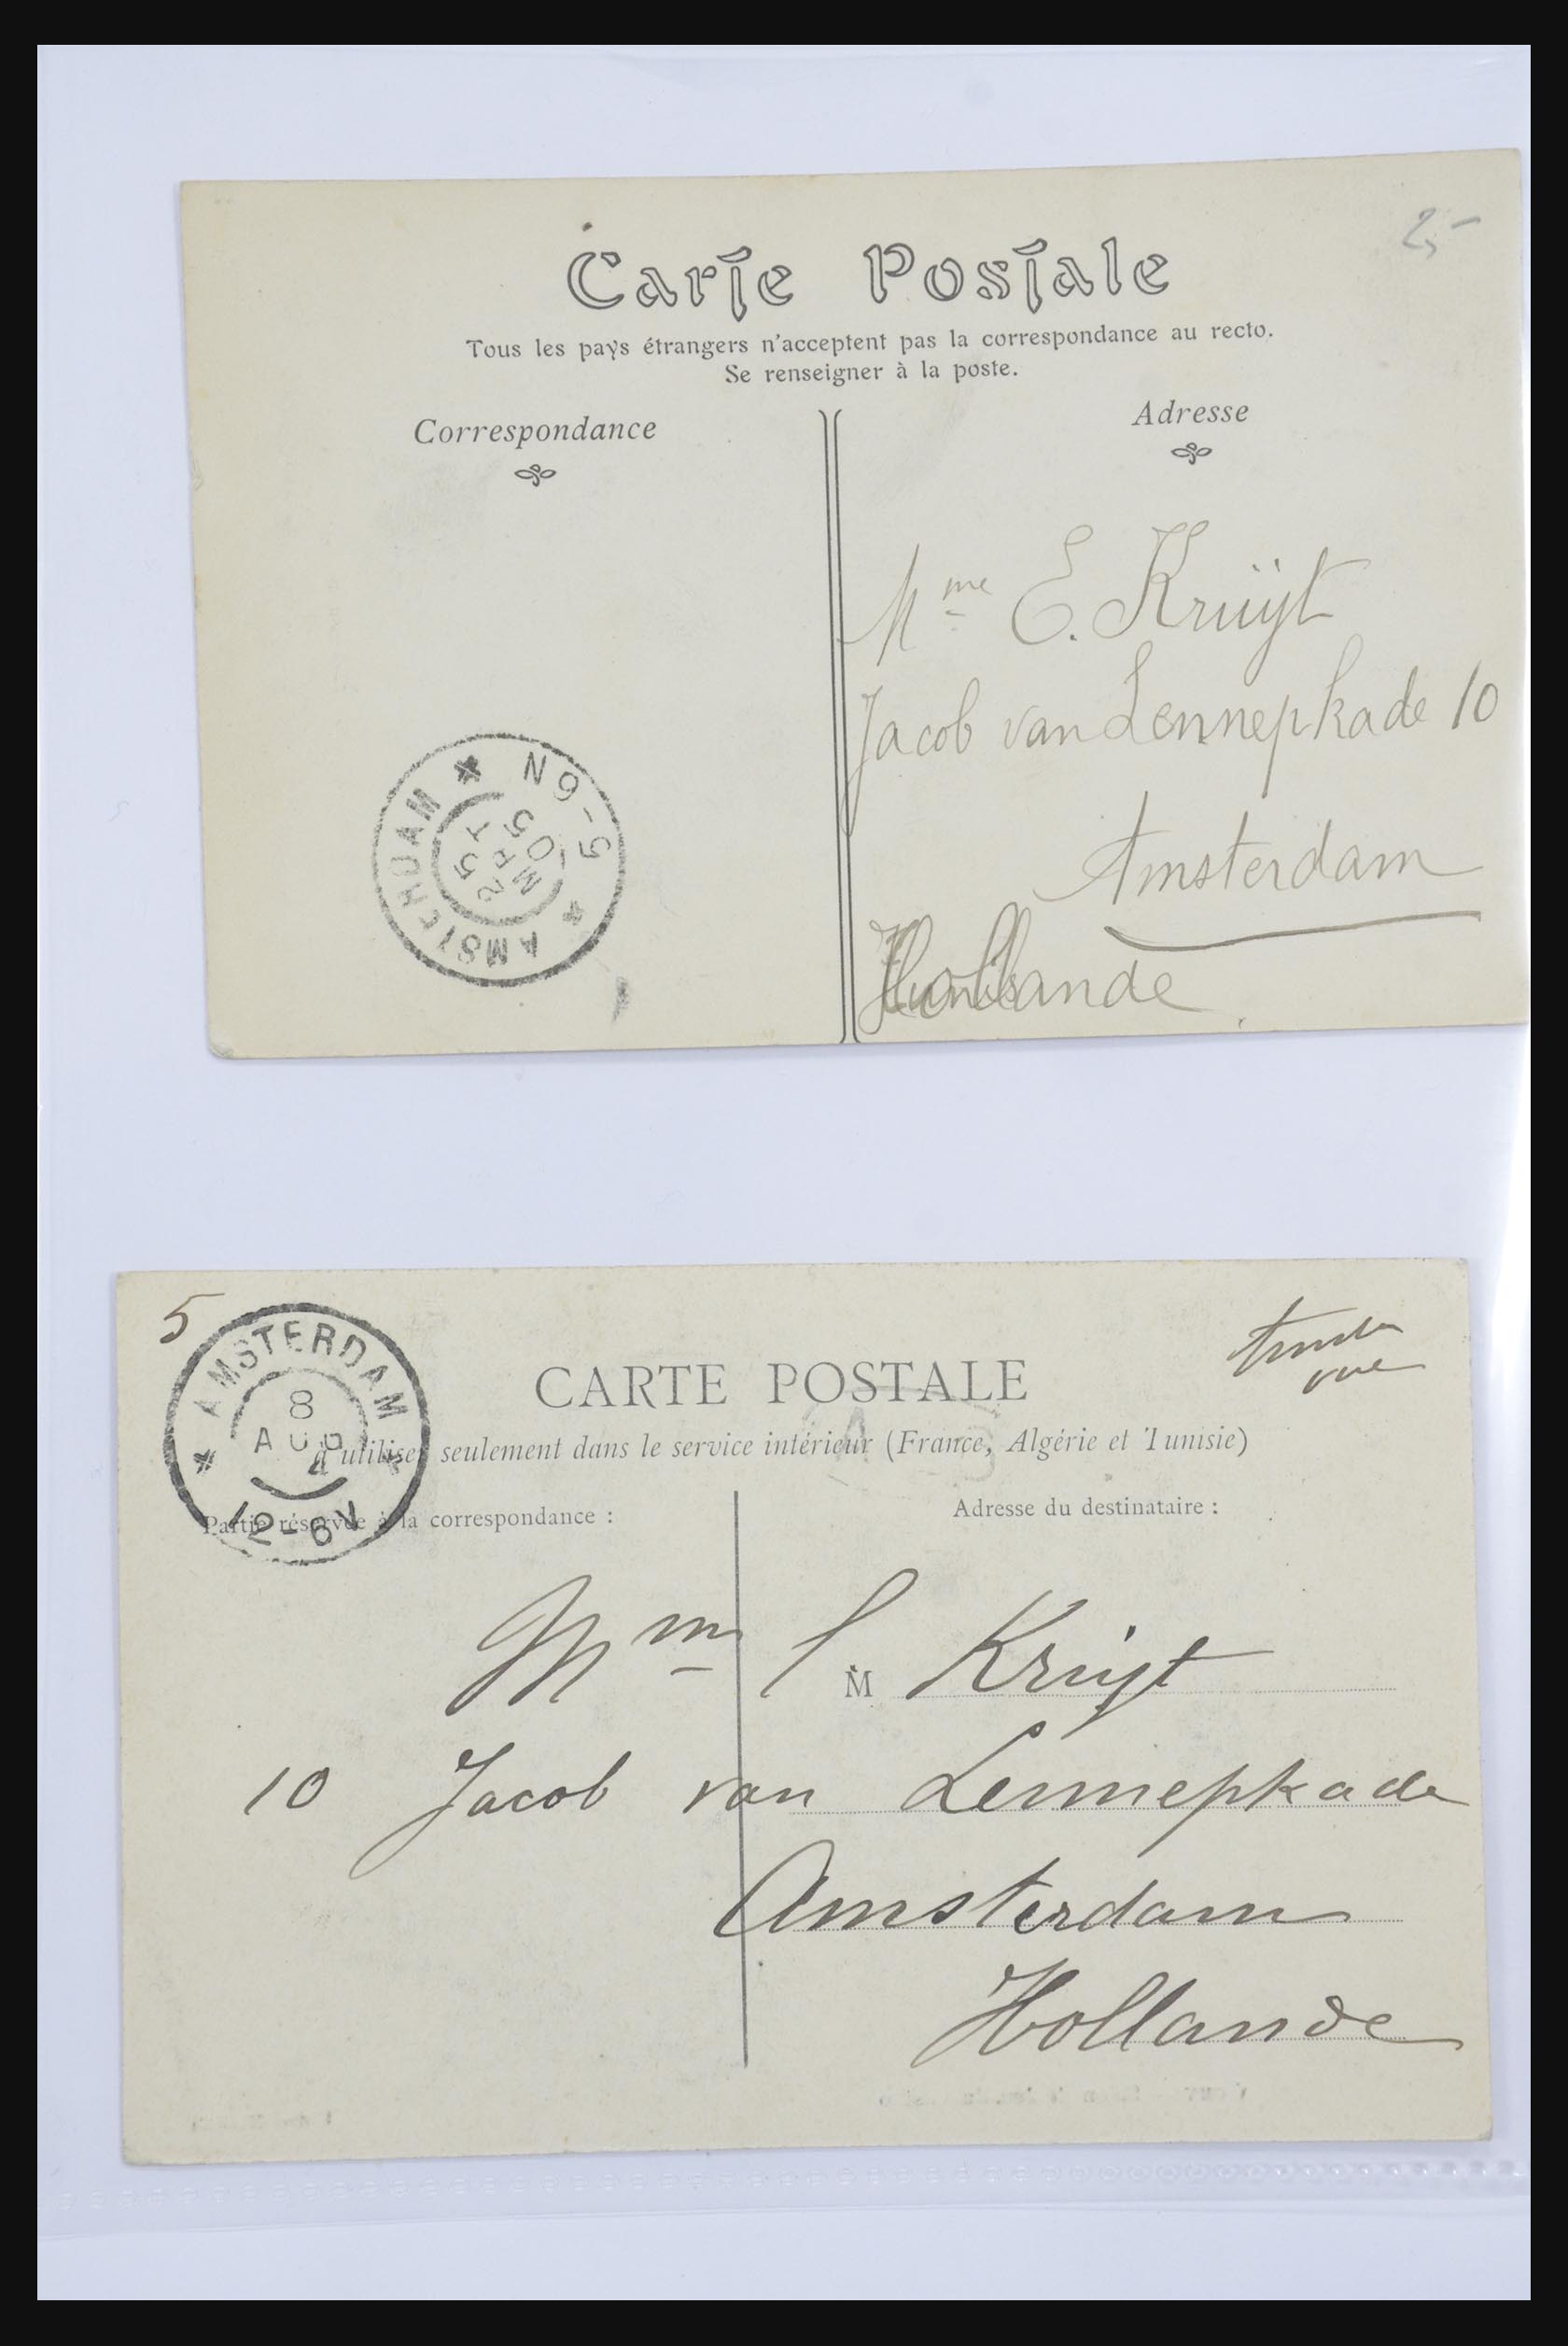 2,-
Carte Postale
Tous les pays étrangers n'acceptent pas la correspondance au recto.
Se renseigner à la poste.
Correspondance
Adresse
Mme E. Kruÿt
Jacob van Lennepkade 10
Amsterdam
Hollande
AMSTERDAM
25 MRT 05
5-6N
5
AMSTERDAM
8
AUG
12-6V
CARTE POSTALE
à utiliser seulement dans le service intérieur (France, Algérie et Tunisie)
Partie réservée à la correspondance :
Adresse du destinataire :
Mme
M Kruijt
10 Jacob van Lennepkade
Amsterdam
Hollande